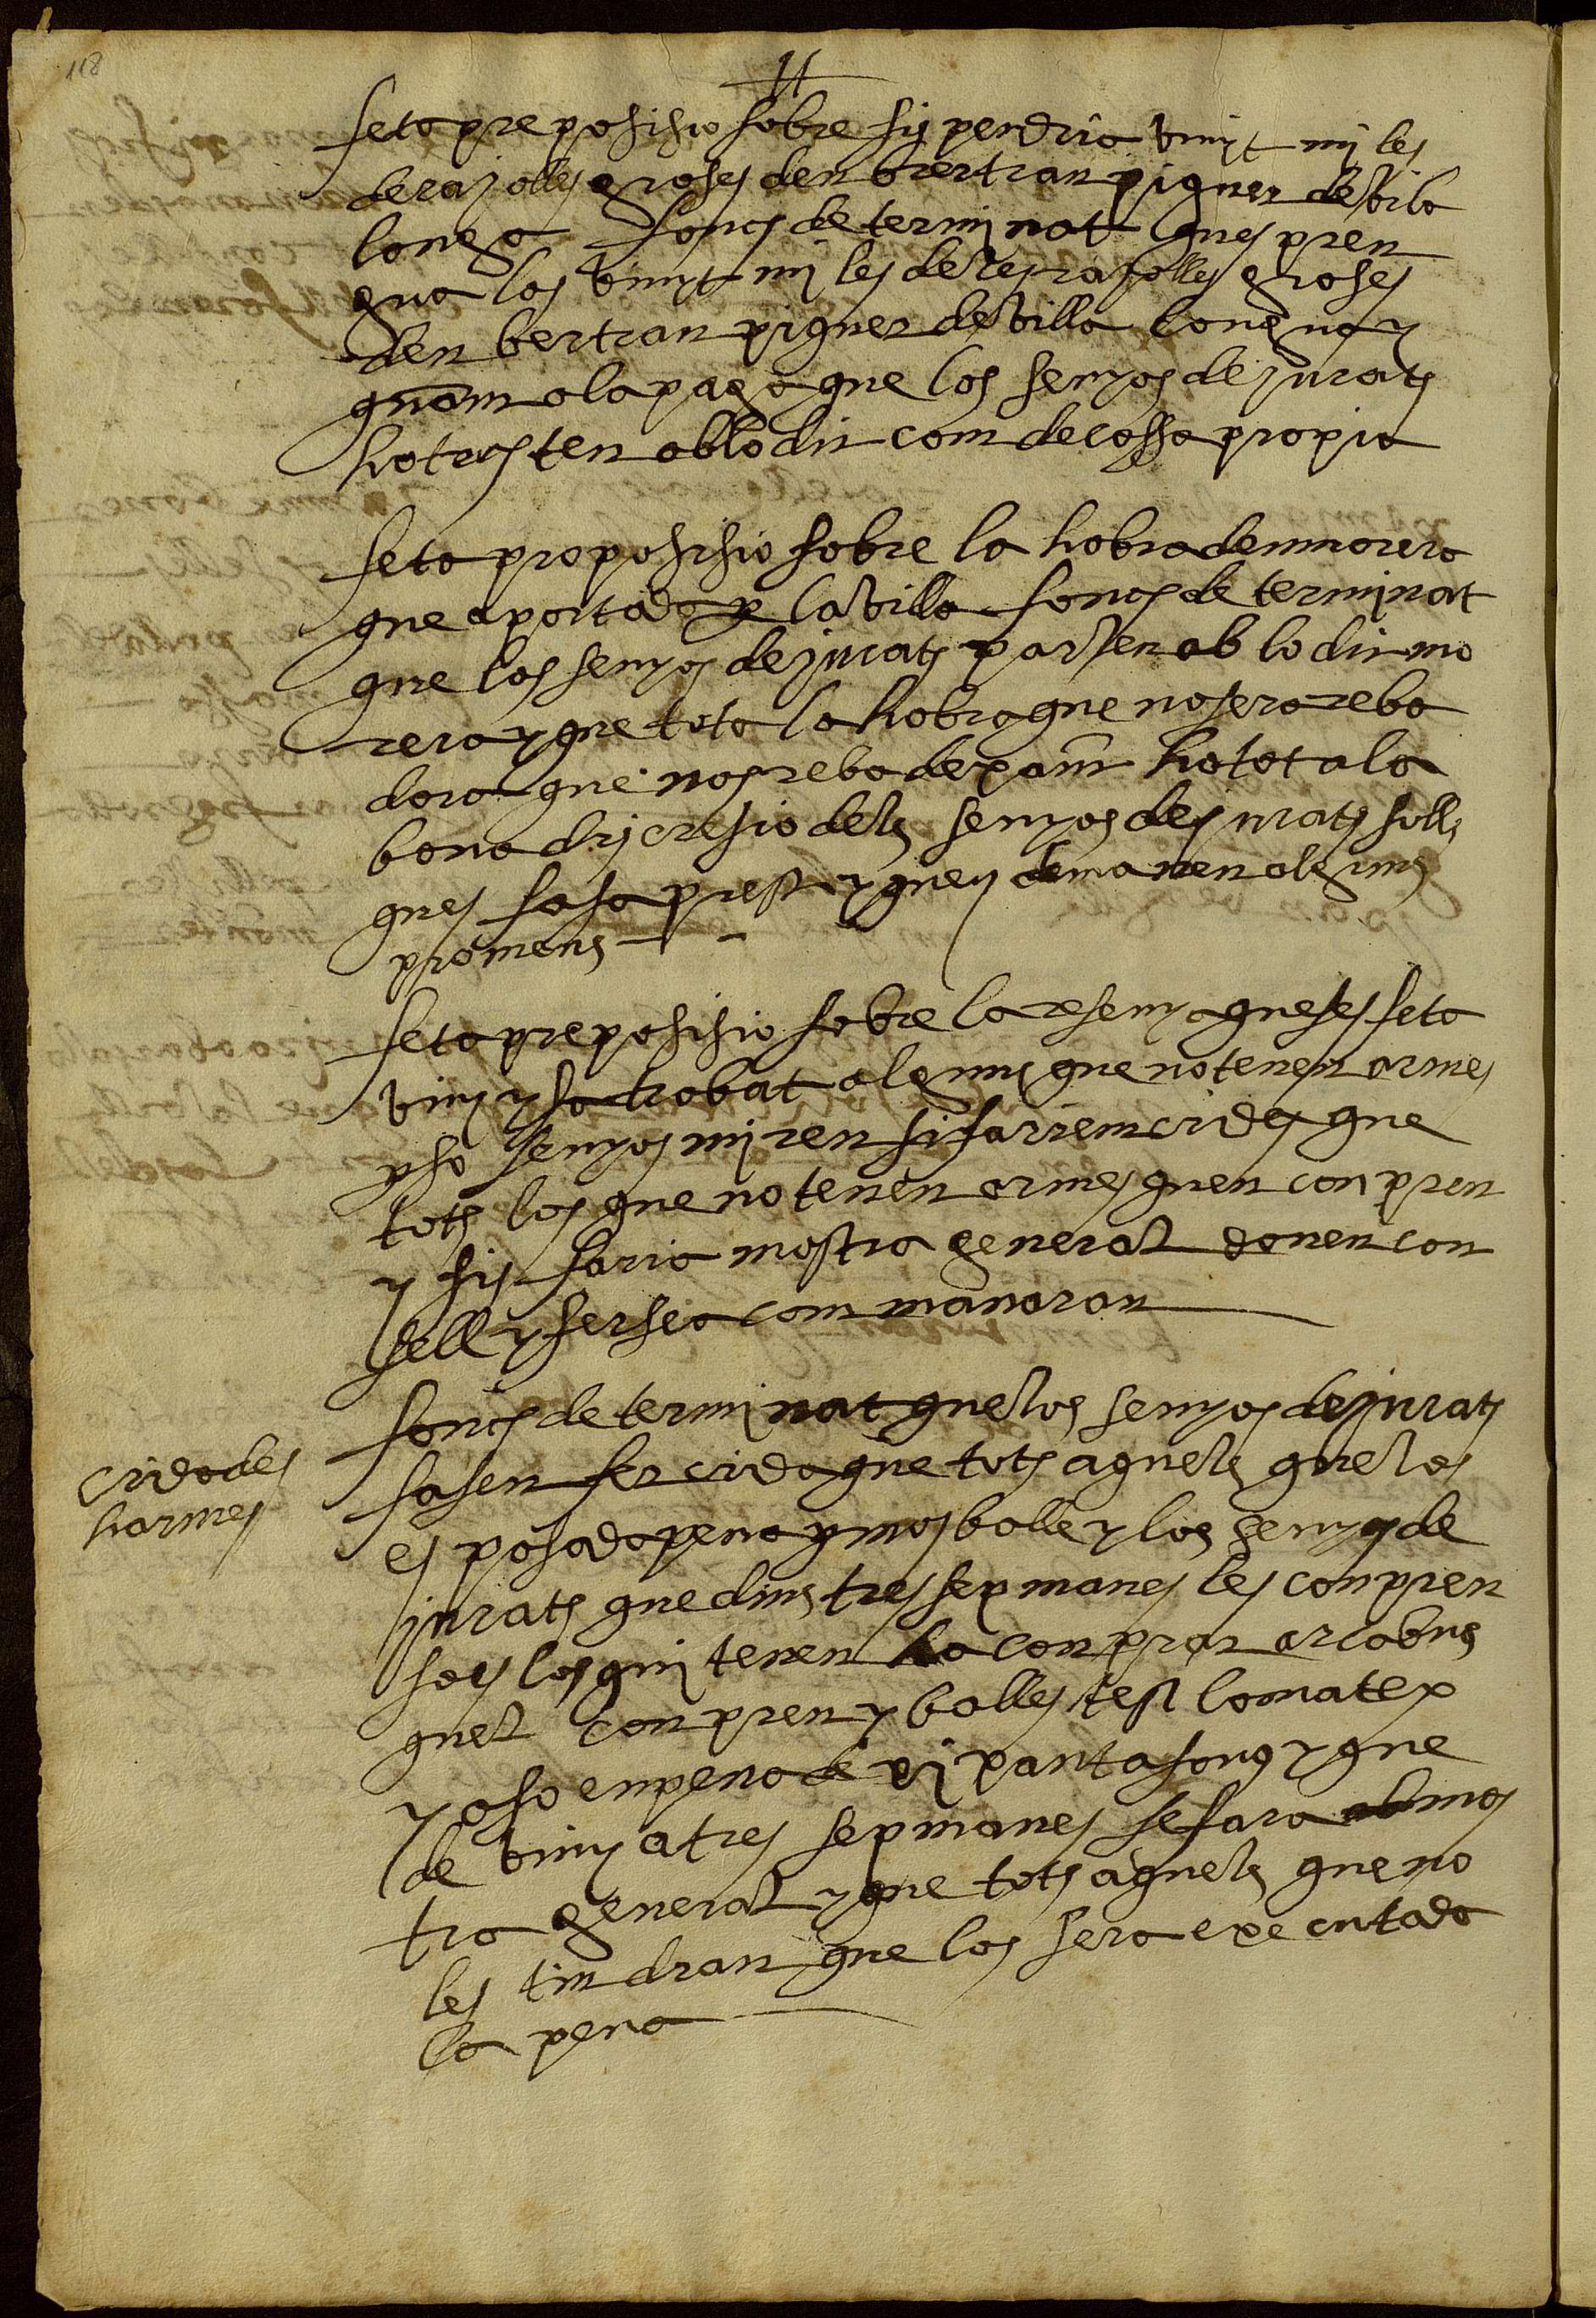 118
feta preposisio sobre sis pendria vinyt miles
de rajolles groses den bertran piguer de vila
longa fonch determinat ques pren
gua los vinyt miles de les rajolles groses
den bertran piguer de villa longua y
quant a la paga que los senyos de jurats
ho tresten ab lo dit com de cossa propia
feta proposisio sobre la hobra den morera
que a portada per la villa fonch determinat
que los senyos de jurats parlen ab lo dit mo
rera y que tota la hobra que no sera reba
dora que nos reba de pam ho tot a la
bona discresio dels senyos de jurats solls
ques fasa prest y quey demanen alguns
promens
feta preposisio sobre la resenya que ses feta
vuy y sa trobat alguns que no tenen armes
y so senyos miren si farrem crides que
tots los que no tenen armes quen conpren
y sis faria mostra general donen con
sell y ferseo com manaran
fonch determinat que los senyos de jurats
fasen fer crida que tots aquels que los
es posada pena per mos balle y los senyos de
jurats que dins tres sepmanes les conpren
so es los qui tenen ha conprar arcabus
quel conpren y balles test lo matex
y aso en pena de pantasous y que
de vuy a tres sepmanes se fara mos
tra general y que tots aquels que no
les tindran que los sera executada
la pena
crida de
harmes